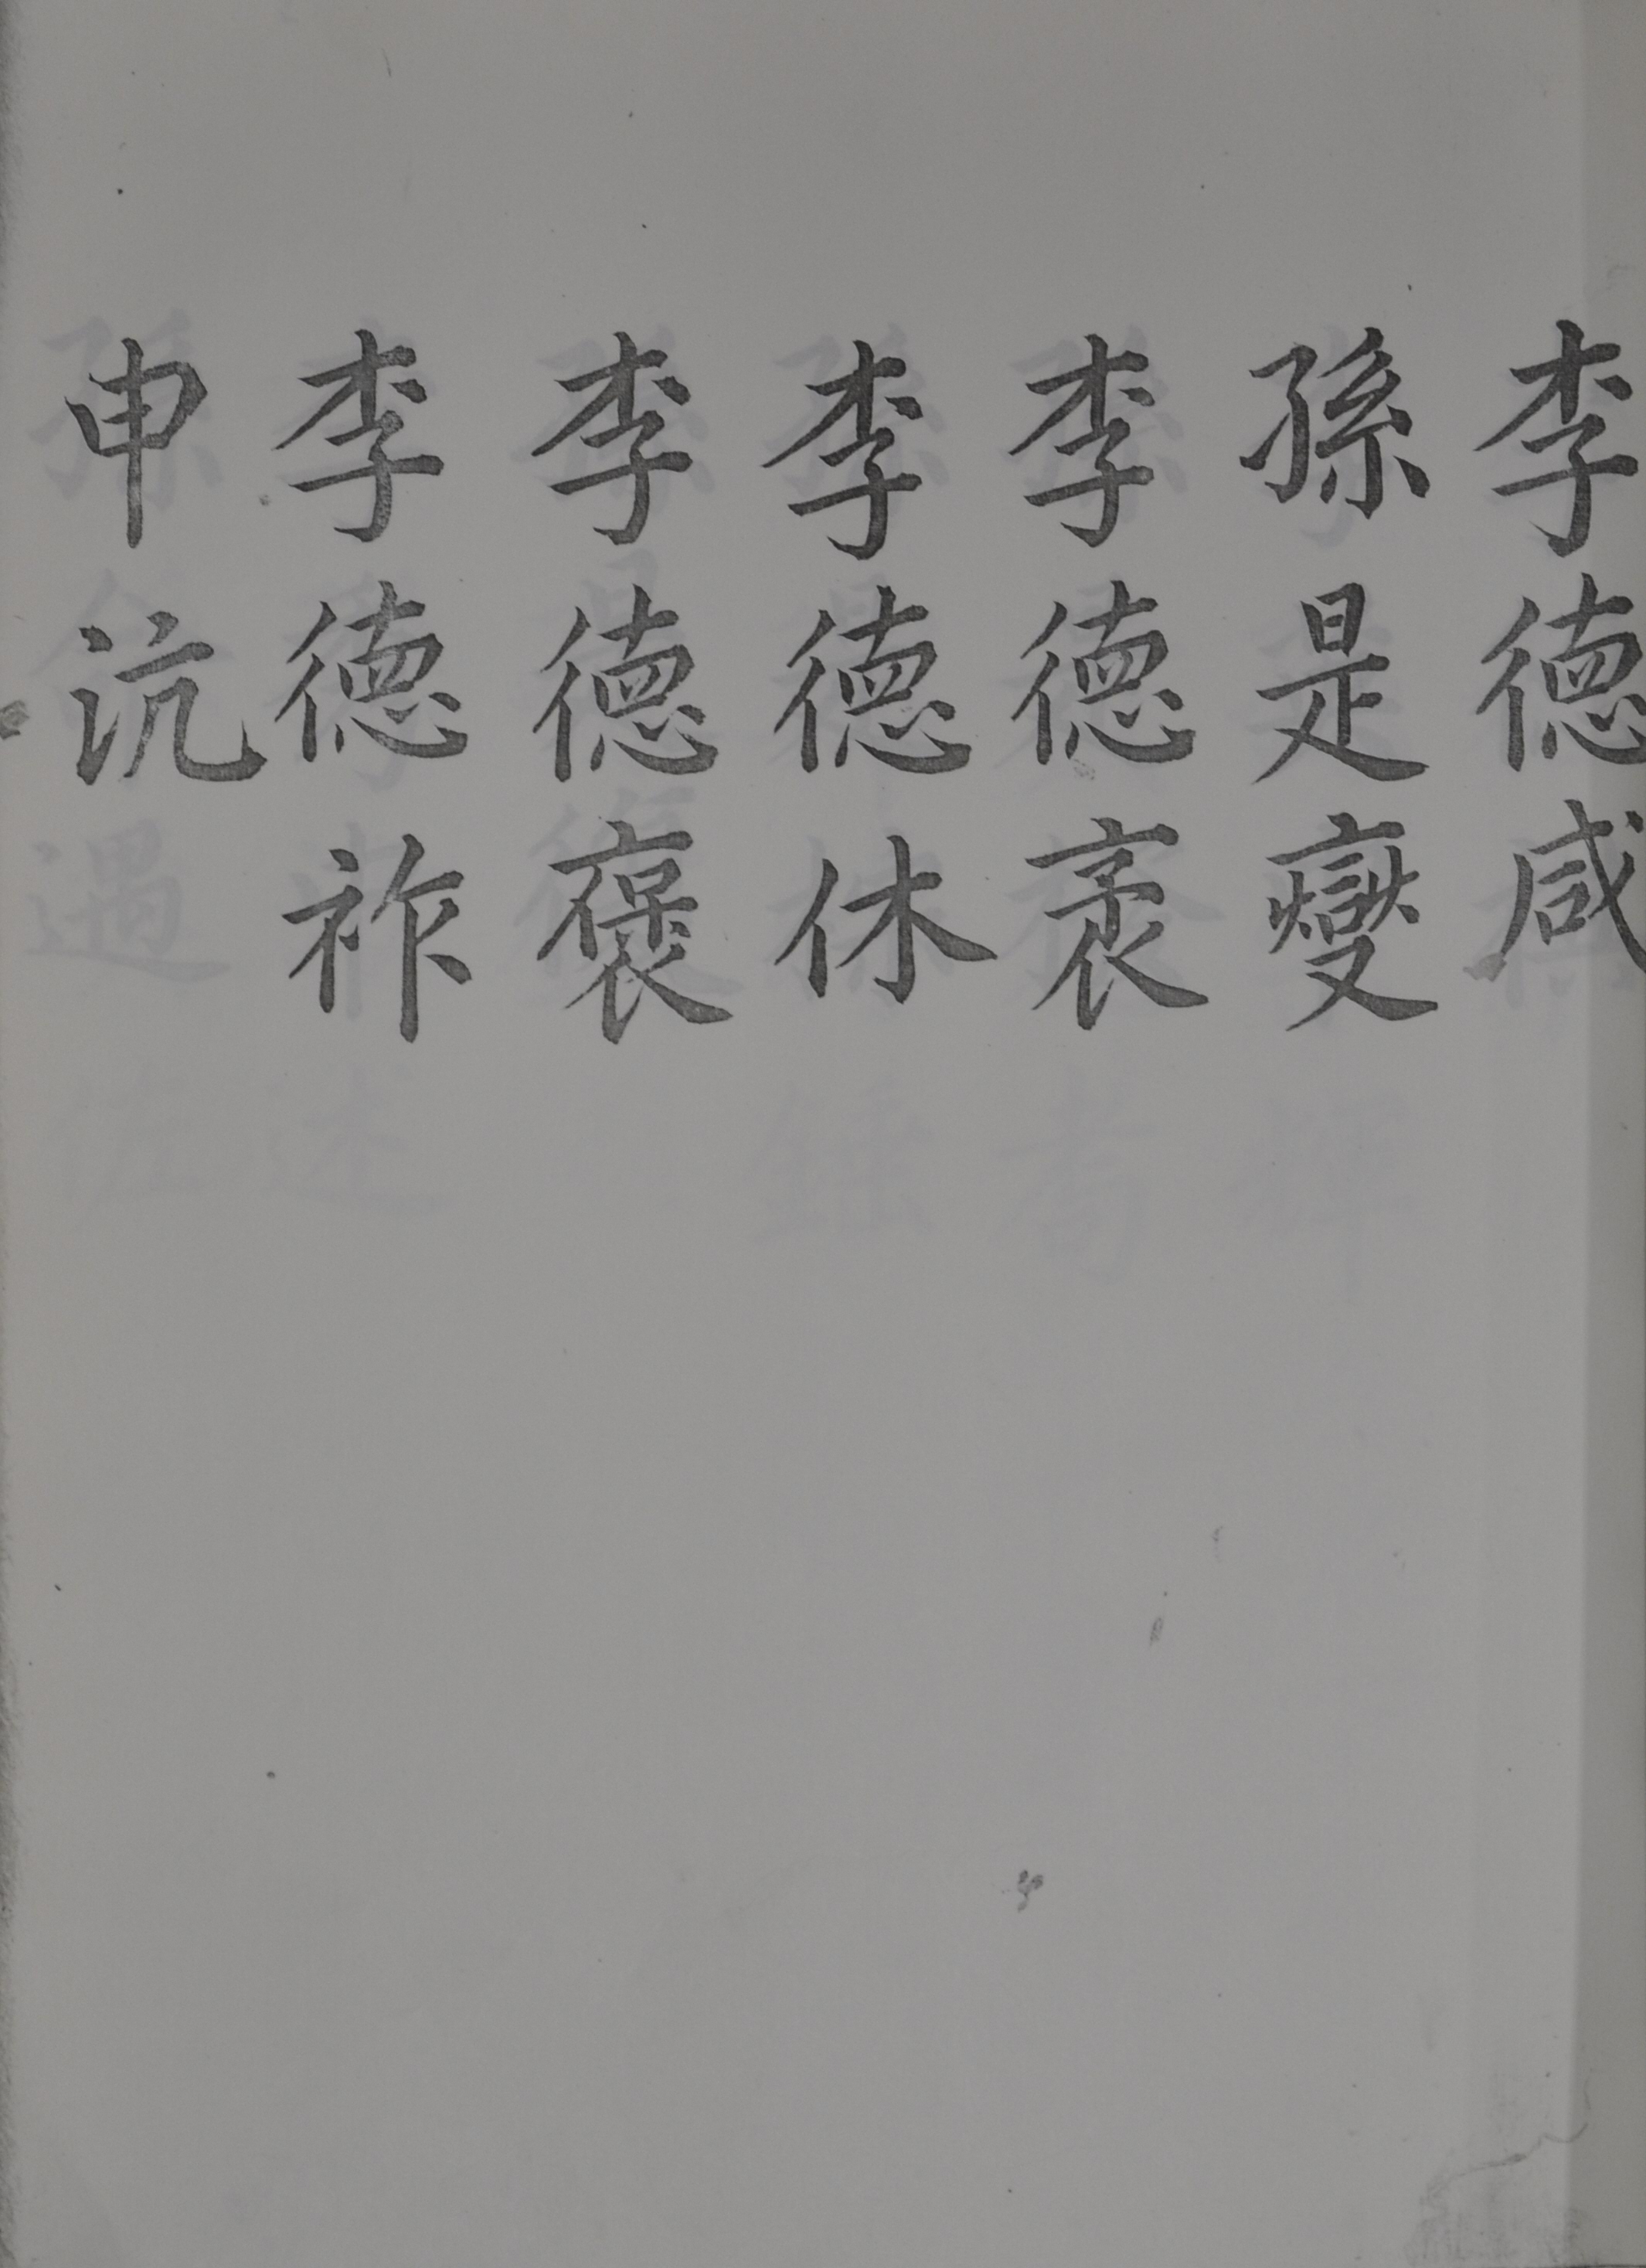 李德咸
孫是燮
李德袤
李德休
李德褒
李德祚
申沆